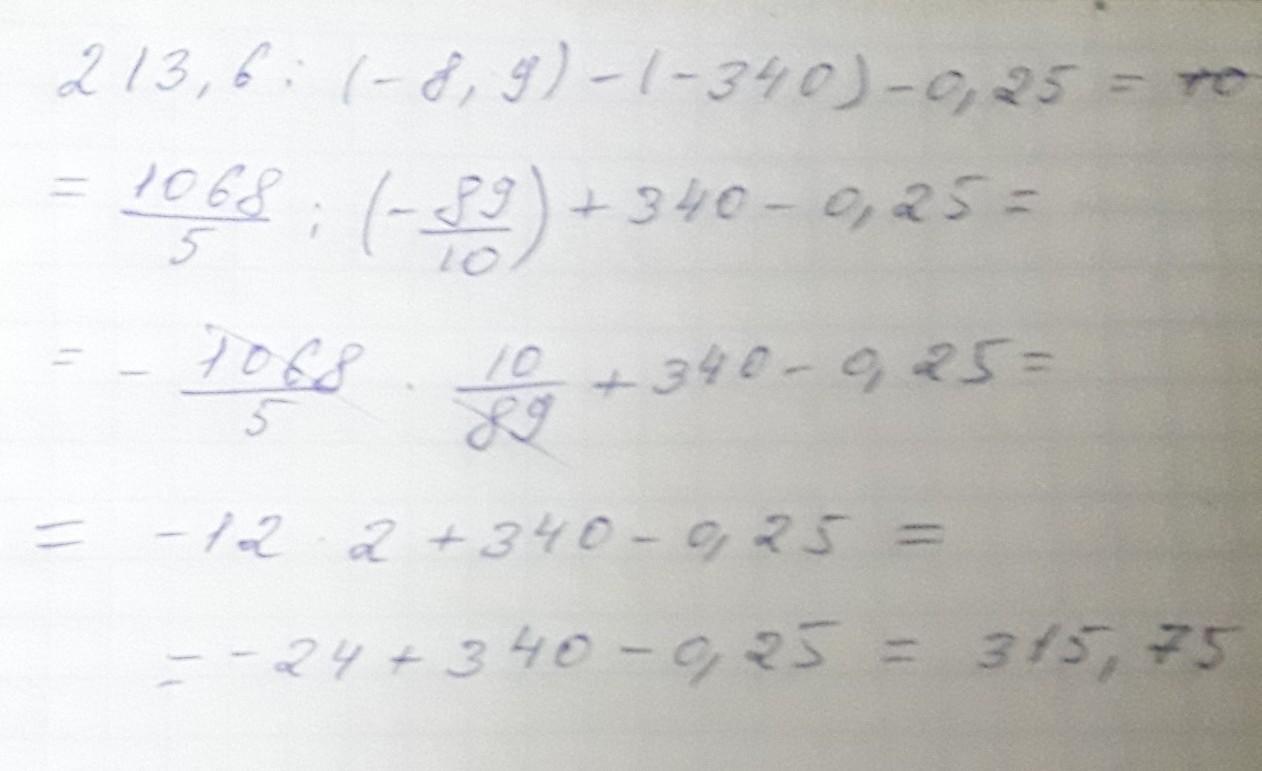 213,6 : (-8,9) - (-340) - 0,25 =
= 1068/5 : (-89/10) + 340 - 0,25 =
= - 1068/5 · 10/89 + 340 - 0,25 =
= -12 · 2 + 340 - 0,25 =
= -24 + 340 - 0,25 = 315,75